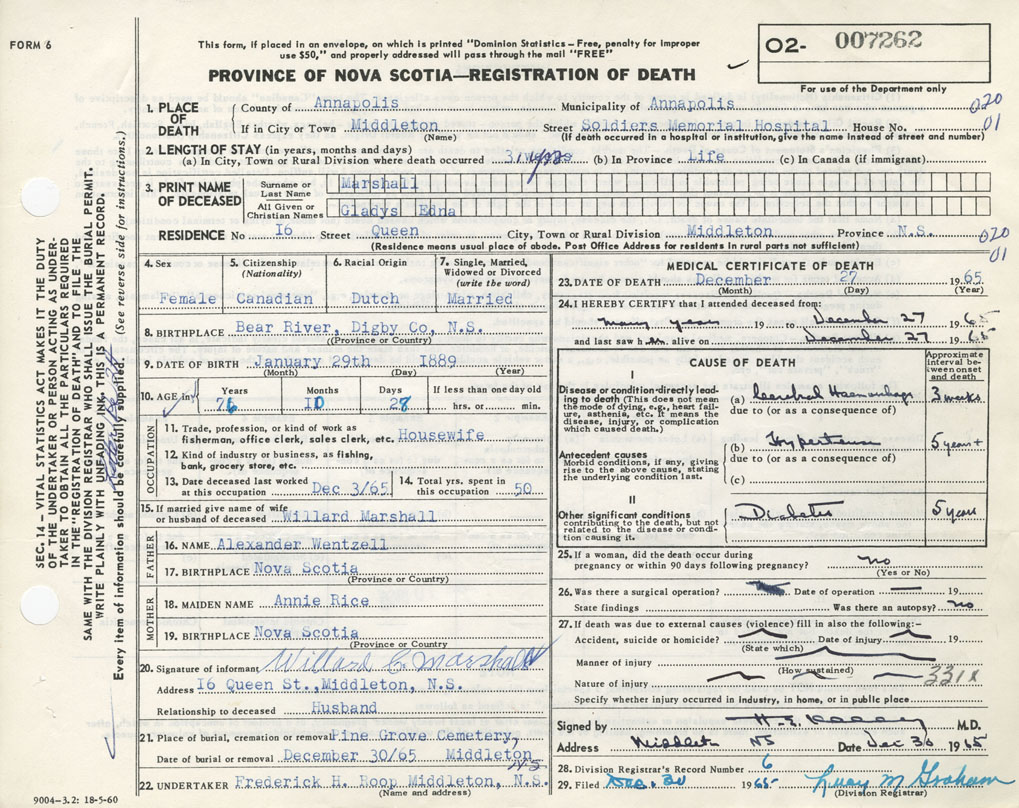 FORM 6
This form, if placed in an envelope, on which is printed "Dominion Statistics – Free, penalty for improper
use $50," and properly addressed will pass through the mail "FREE"
PROVINCE OF NOVA SCOTIA—REGISTRATION OF DEATH
O2- 007262
For use of the Department only
020
01
1. PLACE OF DEATH
County of Annapolis Municipality of Annapolis
If in City or Town Middleton Street Soldiers Memorial Hospital House No.
(Name) (If death occurred in a hospital or institution, give the name instead of street and number)
2. LENGTH OF STAY (in years, months and days)
(a) In City, Town or Rural Division where death occurred 31 yrs (b) In Province Life (c) In Canada (if immigrant)
3. PRINT NAME OF DECEASED
Surname or Last Name Marshall
All Given or Christian Names Gladys Edna
RESIDENCE No 16 Street Queen City, Town or Rural Division Middleton Province N.S.
(Residence means usual place of abode. Post Office Address for residents in rural parts not sufficient)
020
01
4. Sex Female
5. Citizenship (Nationality) Canadian
6. Racial Origin Dutch
7. Single, Married, Widowed or Divorced (write the word) Married
8. BIRTHPLACE Bear River, Digby Co, N.S.
((Province or Country)
9. DATE OF BIRTH January 29th 1889
(Month) (Day) (Year)
10. AGE in Years Months Days If less than one day old
76 10 28 hrs. or min.
OCCUPATION
11. Trade, profession, or kind of work as
fisherman, office clerk, sales clerk, etc. Housewife
12. Kind of industry or business, as fishing,
bank, grocery store, etc.
13. Date deceased last worked at this occupation Dec 3/65
14. Total yrs. spent in this occupation 50
15. If married give name of wife
or husband of deceased Willard Marshall
FATHER
16. NAME Alexander Wentzell
17. BIRTHPLACE Nova Scotia
(Province or Country)
MOTHER
18. MAIDEN NAME Annie Rice
19. BIRTHPLACE Nova Scotia
(Province or Country)
20. Signature of informant Willard C Marshall
Address 16 Queen St., Middleton, N.S.
Relationship to deceased Husband
21. Place of burial, cremation or removal Pine Grove Cemetery,
Date of burial or removal December 30/65 Middleton
N.S.
22. UNDERTAKER Frederick H. Roop Middleton, N.S.
(Name and address)
9004-3.2: 18-5-60
MEDICAL CERTIFICATE OF DEATH
23. DATE OF DEATH December 27 1965
(Month) (Day) (Year)
24. I HEREBY CERTIFY that I attended deceased from:
many years 19 to December 27 1965
and last saw her alive on December 27 1965
CAUSE OF DEATH
Approximate interval between onset and death
I
Disease or condition directly leading to death (This does not mean the mode of dying, e.g., heart failure, asthenia, etc. It means the disease, injury, or complication which caused death.)
(a) Cerebral Haemorrhage 3 weeks
due to (or as a consequence of)
(b) Hypertension 5 years +
due to (or as a consequence of)
Antecedent causes
Morbid conditions, if any, giving rise to the above cause, stating the underlying condition last.
(c)
II
Other significant conditions
contributing to the death, but not related to the disease or condition causing it.
Diabetes 5 years
25. If a woman, did the death occur during
pregnancy or within 90 days following pregnancy? no
(Yes or No)
26. Was there a surgical operation? Date of operation — 19
State findings Was there an autopsy? no
27. If death was due to external causes (violence) fill in also the following:–
Accident, suicide or homicide? Date of injury 19
(State which)
Manner of injury
(How sustained)
Nature of injury 331X
Specify whether injury occurred in industry, in home, or in public place
Signed by M.D.
Address Middleton NS Date Dec 30 1965
28. Division Registrar's Record Number 6
29. Filed Dec. 30 1965 M Graham
(Division Registrar)
SEC. 14 – VITAL STATISTICS ACT MAKES IT THE DUTY
OF THE UNDERTAKER OR PERSON ACTING AS UNDER-
TAKER TO OBTAIN ALL THE PARTICULARS REQUIRED
IN THE "REGISTRATION OF DEATH" AND TO FILE THE
SAME WITH THE DIVISION REGISTRAR WHO SHALL ISSUE THE BURIAL PERMIT.
WRITE PLAINLY WITH UNFADING INK, THIS IS A PERMANENT RECORD.
Every item of information should be carefully supplied. (See reverse side for instructions.)